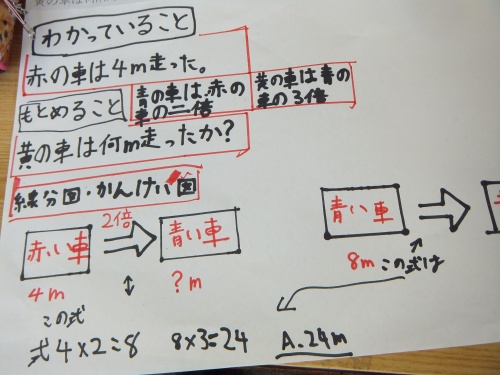 わかっていること
赤の車は4m走った。
青の車は、赤の車の二倍
黄の車は青の車の3倍
もとめること
黄の車は何m走ったか?
線分図・かんけい図
赤い車
2倍
青い車
4m
?m
青い車
8m この式は
この式
式4×2=8
8×3=24
A.24m